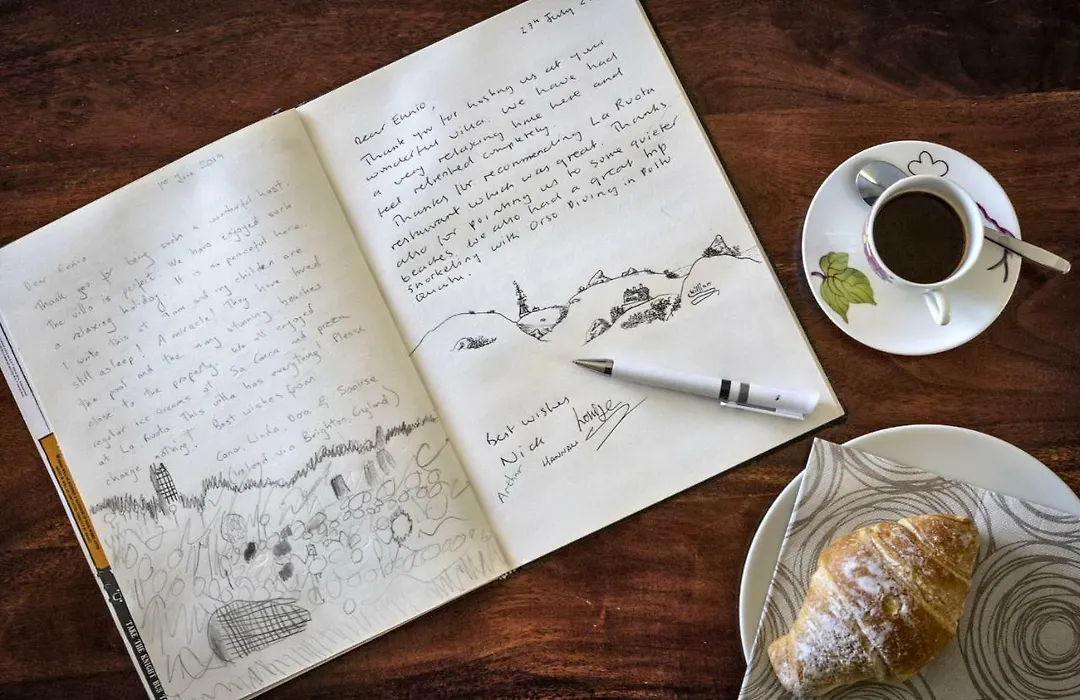 1st June 2019
Dear Ennio
Thank you for being such a wonderful host.
The villa is perfect. We have enjoyed such
a relaxing holiday. It is so peaceful here.
I write this at 9am and my children are
still asleep! A miracle! They have loved
the pool and the many stunning beaches
close to the property. We all enjoyed
regular ice creams at Sa Conca and pizza
at La Ruota. This villa has everything! Please
change nothing! Best wishes from
Conor, Linda Dora & Saoirse
(Ireland via Brighton, England)
TAKE THE KNIGHT BUS
27th July
Dear Ennio,
Thank you for hosting us at your
wonderful villa. We have had
a very relaxing time here and
feel refreshed completely.
Thanks for recommending La Ruota
restaurant which was great. Thanks
also for pointing us to some quieter
beaches. We also had a great trip
snorkeling with Orso Diving in Poltu
Quatu.
William
Best wishes
Nick Louise
HANNAH
Archer